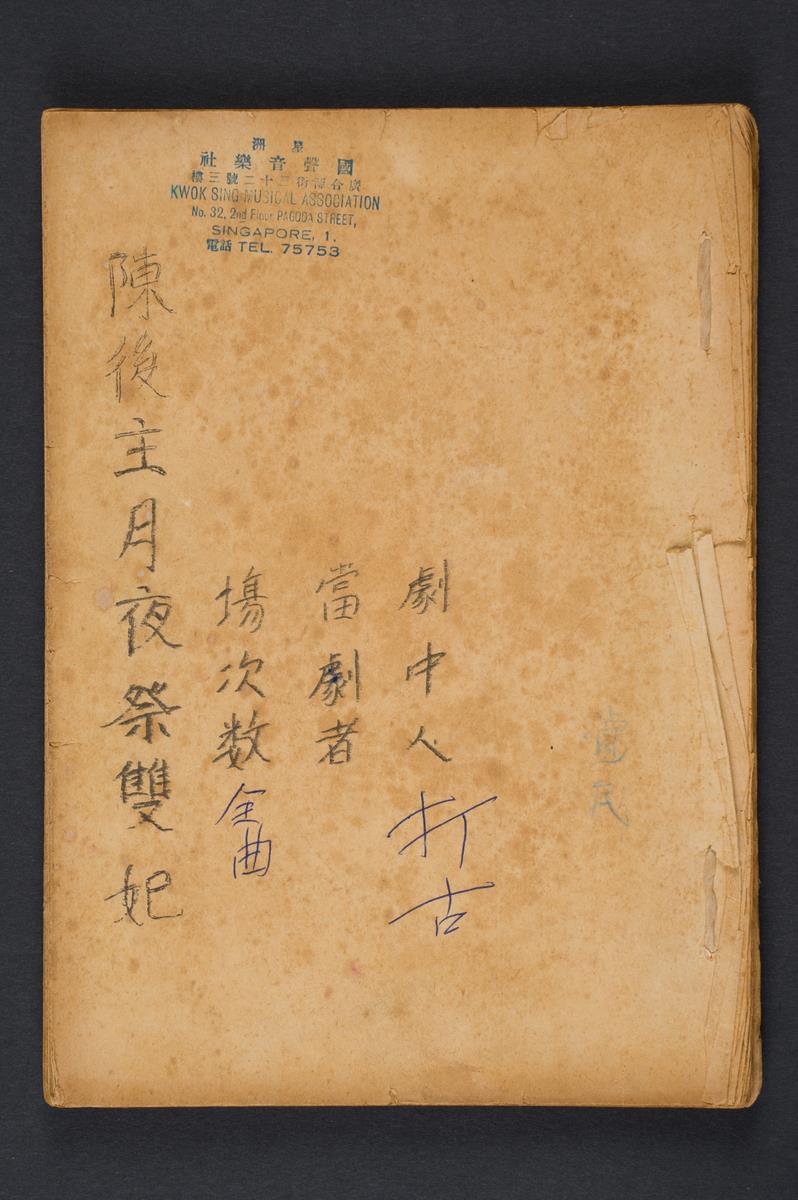 星洲
國聲音樂社
廣合源街三十二號三樓
KWOK SING MUSICAL ASSOCIATION
No. 32, 2nd Floor PAGODA STREET,
SINGAPORE, 1.
電話 TEL. 75753
劇中人 打古
當劇者
場次数 全曲
陳後主月夜祭雙妃